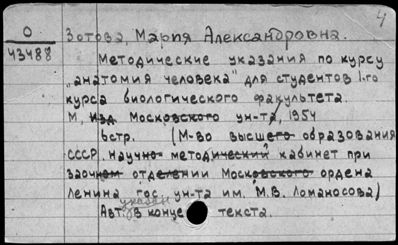 4
О
43488
Зотова, Мария Александровна.
Методические указания по курсу
„анатомия человека" для студентов 1-го
курса биологического факультета.
М, Изд. Московского ун-та, 1954
6стр. (М-во высшего образования
СССР. Научно-методический кабинет при
заочном отделении Московского ордена
Ленина гос. ун-та им. М.В. Ломаносова)
указан
Авт. в конце текста.